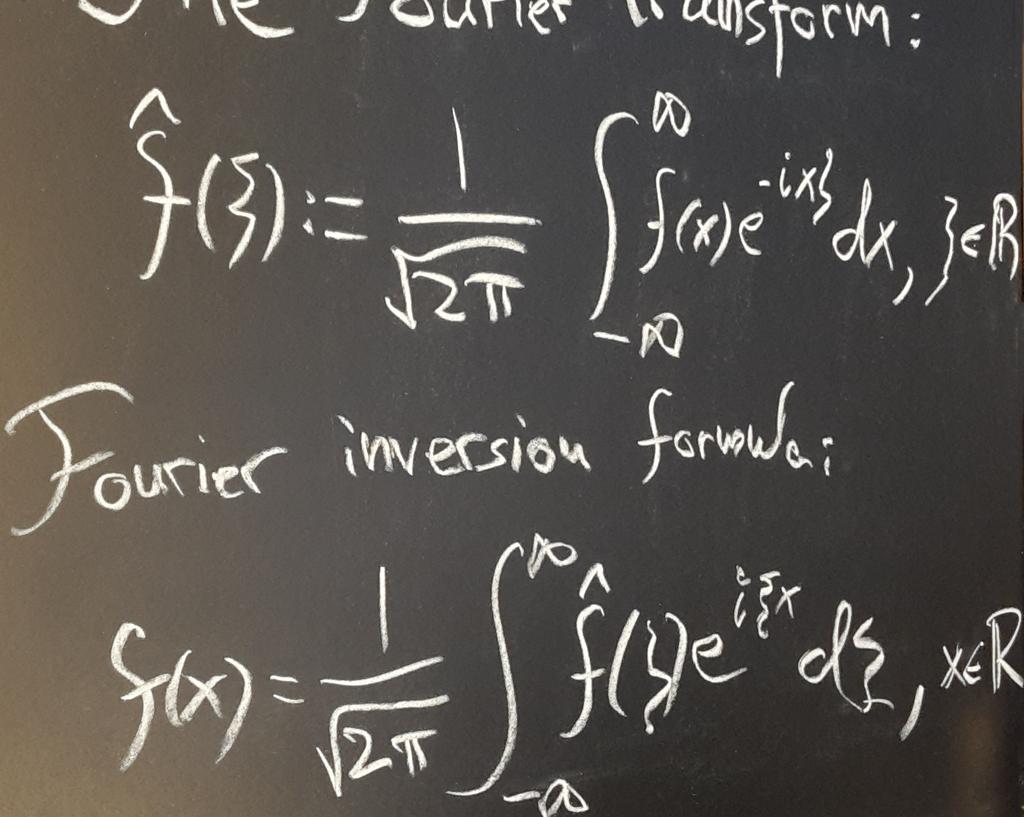 The Fourier transform:
f̂(ξ) := 1/√2π ∫_{-∞}^{∞} f(x)e^{-ixξ} dx, ξ∈ℝ
Fourier inversion formula:
f(x) = 1/√2π ∫_{-∞}^{∞} f̂(ξ)e^{iξx} dξ, x∈ℝ